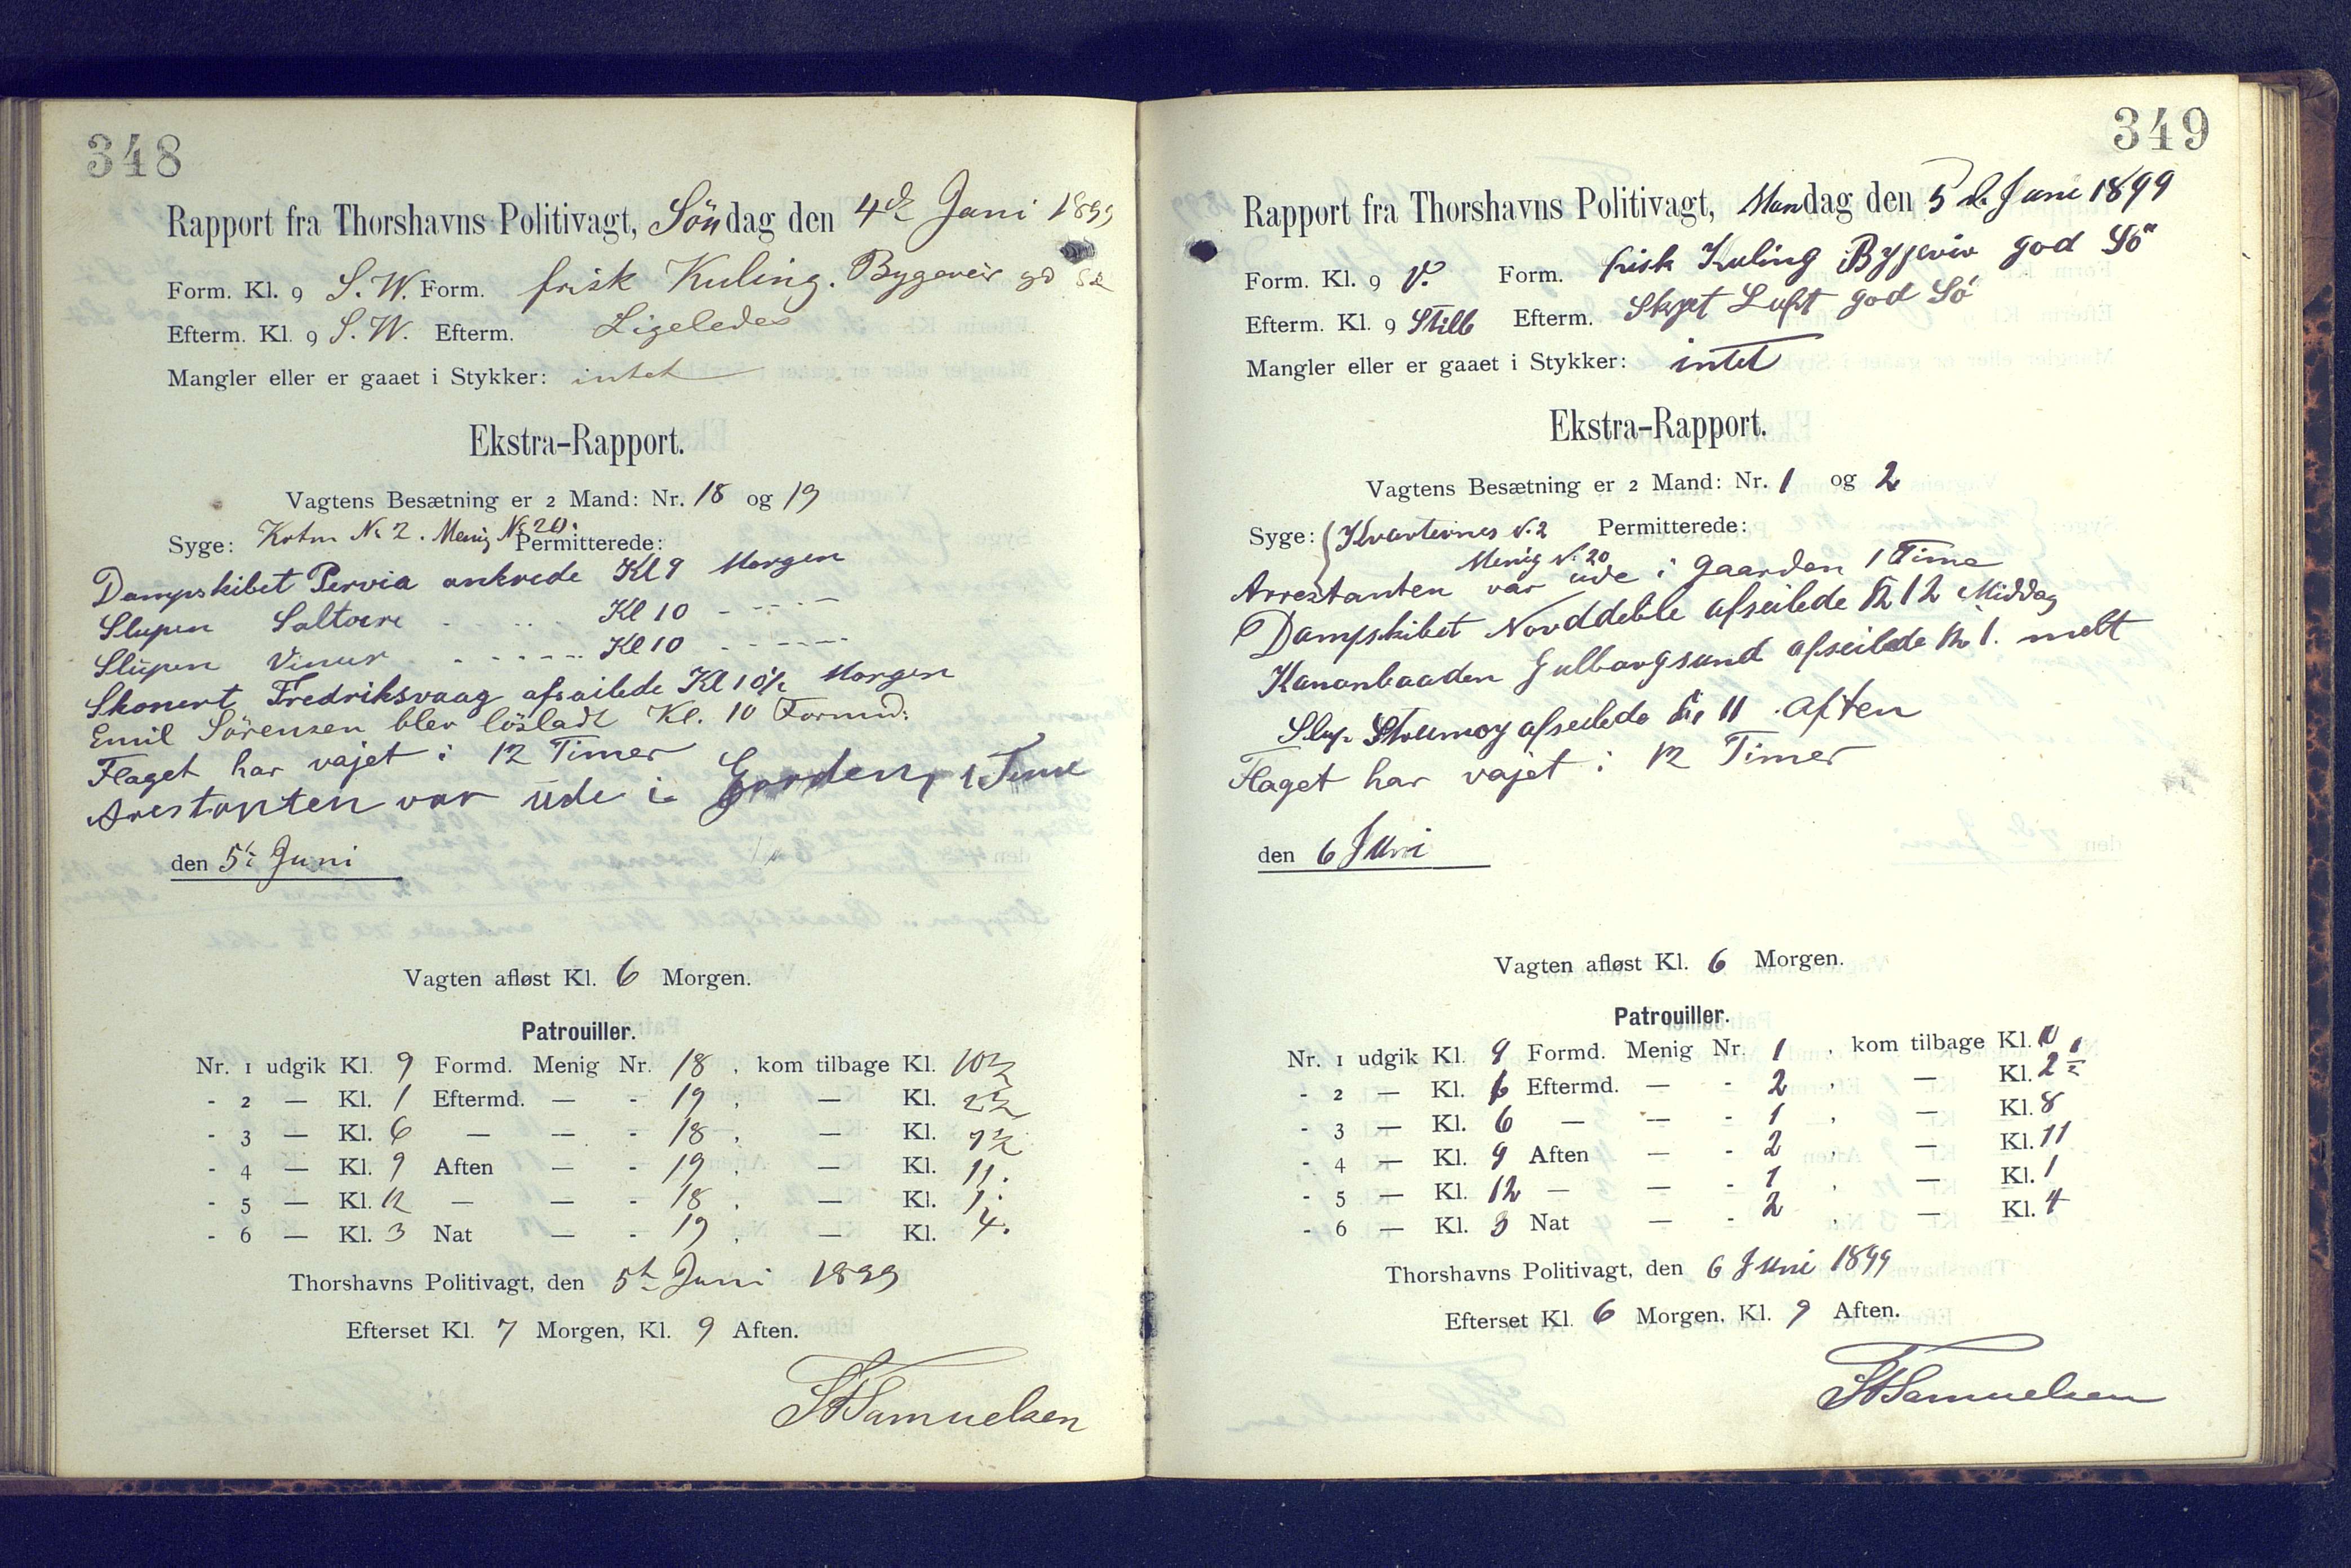 348
Rapport fra Thorshavns Politivagt, Söndag den 4de Juni 1899
Form. Kl. 9 S.W. Form. frisk Kuling. Bygeveir gd Sö
Efterm. Kl. 9 S.W. Efterm. Ligeledes
Mangler eller er gaaet i Stykker: intet
Ekstra-Rapport.
Vagtens Besætning er 2 Mand: Nr. 18 og 19
Syge: Kvtm No 2. Menig No 20. Permitterede:
Dampskibet Pervia ankrede Kl 9 Morgen
Slupen Saltoere - - - Kl 10 - - - -
Slupen Vinur - - - - - Kl 10 - - - -
Skonert Fredriksvaag afsailede Kl 10½ Morgen
Emil Sörensen blev lösladt Kl. 10 Formd:
Flaget har vajet i 12 Timer
Arestanten var ude i Gorden, 1 Time
den 5te Juni
Vagten afløst Kl. 6 Morgen.
Patrouiller.
Nr. 1 udgik Kl. 9 Formd. Menig Nr. 18, kom tilbage Kl. 10½
- 2 — Kl. 1 Eftermd. — - 19, — Kl. 2½
- 3 — Kl. 6 — — - 18, — Kl. 7½
- 4 — Kl. 9 Aften — - 19, — Kl. 11.
- 5 — Kl. 12 — — - 18, — Kl. 1.
- 6 — Kl. 3 Nat — - 19, — Kl. 4.
Thorshavns Politivagt, den 5te Juni 1899
Efterset Kl. 7 Morgen, Kl. 9 Aften.
Samuelsen
349
Rapport fra Thorshavns Politivagt, Mandag den 5 d. Juni 1899
Form. Kl. 9 V. Form. frisk Kuling Bygeviv god Sö
Efterm. Kl. 9 Stille Efterm. Skyet Luft god Sö
Mangler eller er gaaet i Stykker: intet
Ekstra-Rapport.
Vagtens Besætning er 2 Mand: Nr. 1 og 2
Syge: Kvartermes N. 2 Permitterede:
Menig N. 20
Arrestanten var ude i Gaarden 1 Time
Dampskibet Norddeble afseilede Kl 12 Middag
Kanonbaaden Gulborgsund afseilede Kl 1. melt
Slup. Strumoy afseilede Kl 11 Aften
Flaget har vajet i 12 Timer
den 6 Juni
Vagten afløst Kl. 6 Morgen.
Patrouiller.
Nr. 1 udgik Kl. 9 Formd. Menig Nr. 1, kom tilbage Kl. 10
- 2 — Kl. 1 Eftermd. — - 2, — Kl. 2½
- 3 — Kl. 6 — — - 1, — Kl. 8
- 4 — Kl. 9 Aften — - 2, — Kl. 11
- 5 — Kl. 12 — — - 1, — Kl. 1
- 6 — Kl. 3 Nat — - 2, — Kl. 4
Thorshavns Politivagt, den 6 Juni 1899
Efterset Kl. 6 Morgen, Kl. 9 Aften.
Samuelsen